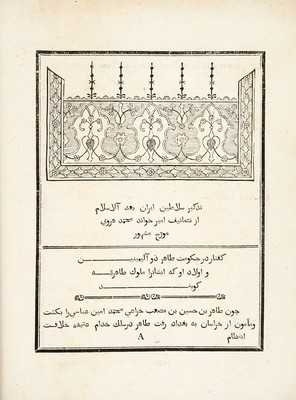 تذكير سلاطين ايران بعد آلاسلام
از تصانيف امير خواند محمد هروي
مورخ مشهور
كفتار در حكومت طاهر ذو آليمينيــن
و اولاد او كه ايشانرا ملوك طاهريّــه
كوينــــد
چون طاهر بن حسين بن مصعب خزاعي محمد امين عباسي را بكشت
ومأمون از خراسان به بغداد رفت طاهر درسلك خدام عتبهٔ خلافت
انتظام
A